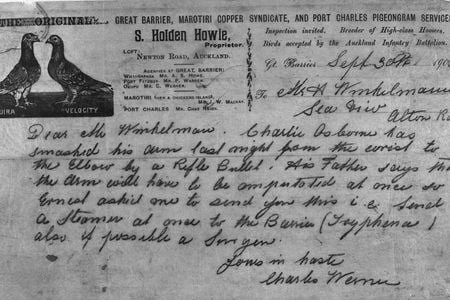 THE ORIGINAL GREAT BARRIER, MAROTIRI COPPER SYNDICATE, AND PORT CHARLES PIGEONGRAM SERVICE
S. Holden Howie,
Proprietor.
Inspection invited. Breeder of High-class Homers.
Birds accepted by the Auckland Infantry Battalion.
LOFT:
NEWTON ROAD, AUCKLAND.
AGENCIES AT GREAT BARRIER:
PORT FITZROY: MR. P. WARNER.
OKUPU: MR. C. WERNER.
MAROTIRI
PORT CHARLES:
Gt. Barrier Sept 30th 190
To Mr H Winkelmann
Sea View
Alton Ro
VELOCITY
Dear Mr Winkelman. Charlie Osborne has
smashed his arm last night from the wrist to
the Elbow by a Rifle Bullet. His Father says tha
the Arm will have to be amputated at once so
Ernest asked me to send you this i e Send
a Steamer at once to the Barrier (Tryphena)
also if possible a Surgen.
Yours in haste
Charles Werner